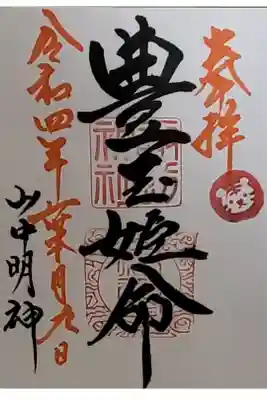 奉拝
豊玉姫命
令和四年葉月九日
山中明神